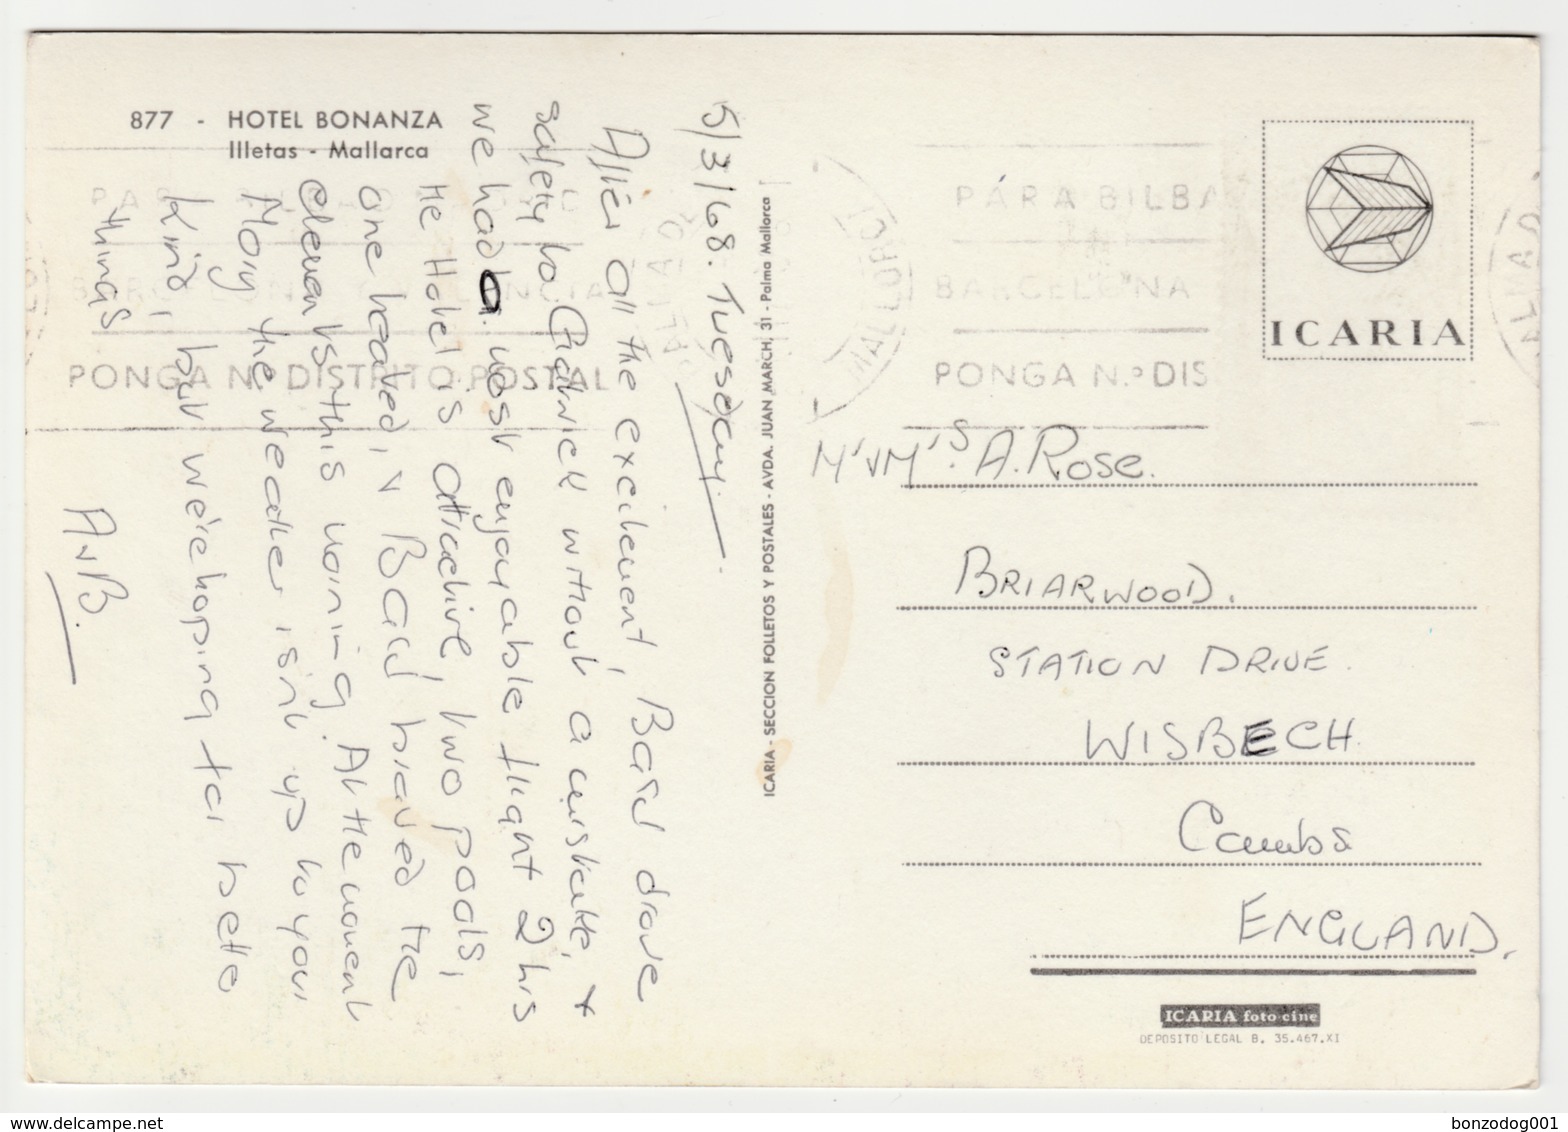 877 - HOTEL BONANZA
Illetas - Mallarca
5/3/68. Tuesday.
After all the excitement, Basil drove
safely to Gatwick without a mistake, +
we had a most enjoyable flight 2 hrs
the Hotel is attractive, two pools,
one heated, & Basil braved the
elements this morning. At the moment
Mary the weather isn't up to your
kind, but we're hoping for better
things
A & B.
ICARIA - SECCION FOLLETOS Y POSTALES - AVDA. JUAN MARCH, 31 - Palma Mallorca
PÁRA BILBA
BARCELONA
PONGA N.º DIS
MALLORCA
BARCELONA Y VALENCIA
PONGA N.º DISTRITO POSTAL
ICARIA
Mr & Mrs. A. Rose.
BRIARWOOD.
STATION DRIVE.
WISBECH
Cambs
ENGLAND.
ICARIA foto-cine
DEPOSITO LEGAL B. 35.467.XI
bonzodog001
delcampe.net